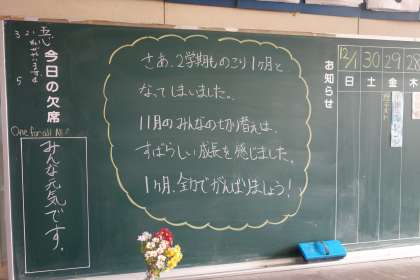 今日の欠席
One for all
みんな元気です。
さあ、2学期ものこり1ヶ月と
なってしまいました。
11月のみんなの切り替えは、
すばらしい成長を感じました。
1ヶ月、全力でがんばりましょう!
お知らせ
12/1 30 29 28
日 土 金 木